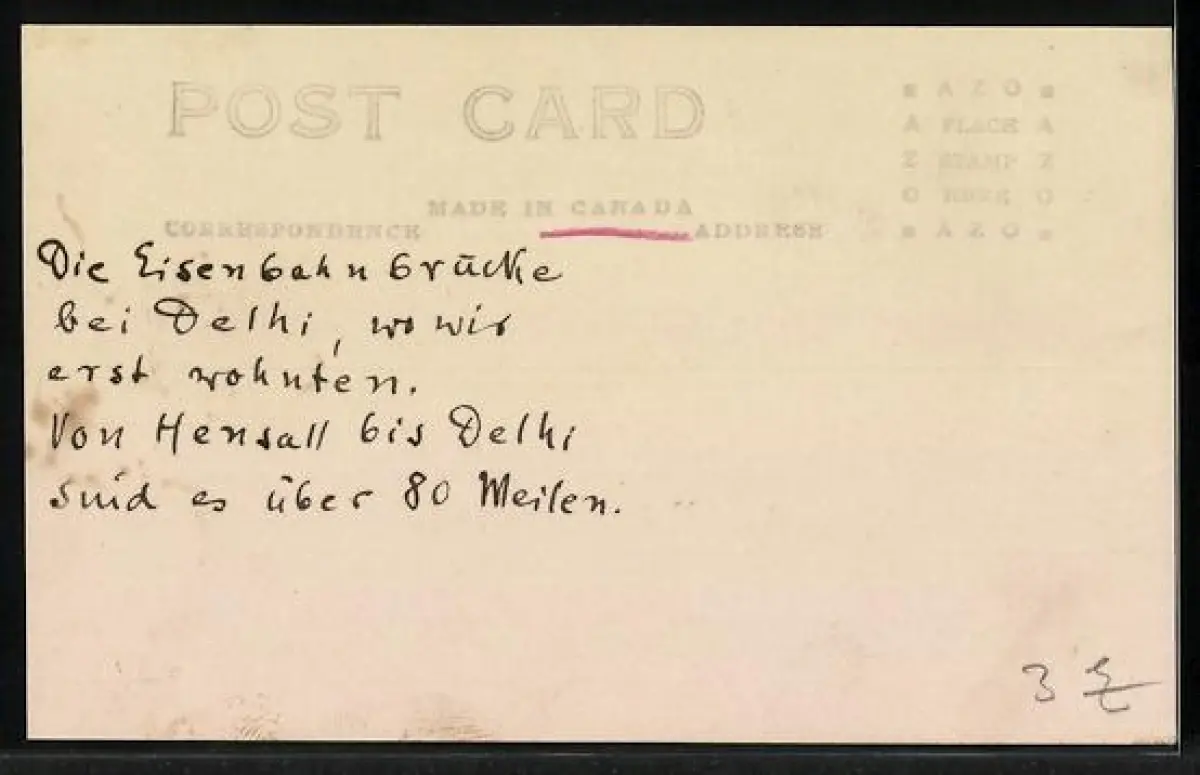 POST CARD
AZO
A PLACE A
Z STAMP Z
O HERE O
AZO
MADE IN CANADA
CORRESPONDENCE ADDRESS
Die Eisenbahnbrücke
bei Delhi, wo wir
erst wohnten.
Von Hensall bis Delhi
sind es über 80 Meilen.
3